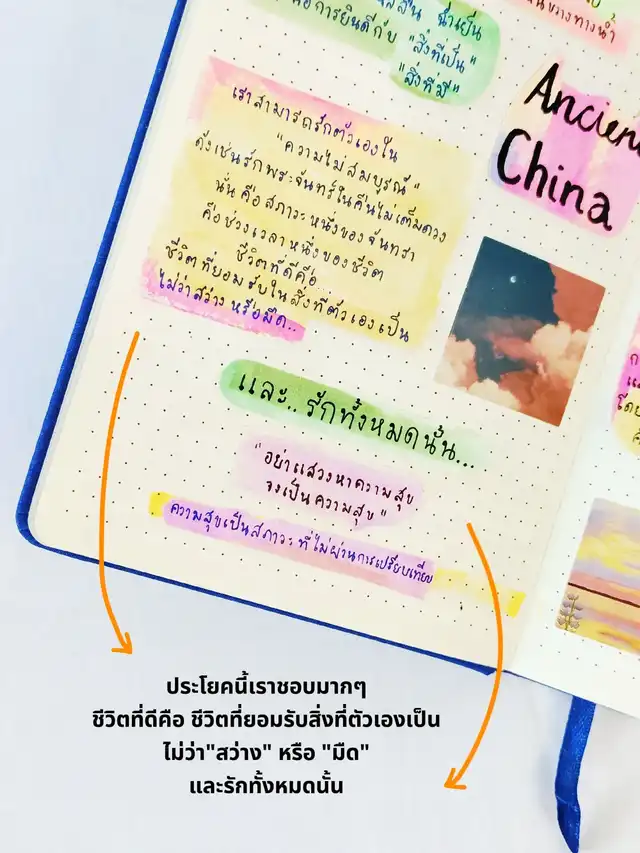 น้ำเย็น
คือการยินดีกับ "สิ่งที่เป็น"
"สิ่งที่มี"
ขวางทางน้ำ
Ancient
China
เราสามารถรักตัวเองใน
"ความไม่สมบูรณ์"
ดังเช่นรักพระจันทร์ในคืนไม่เต็มดวง
นั่นคือสภาวะหนึ่งของจันทรา
คือช่วงเวลาหนึ่งของชีวิต
ชีวิตที่ดีคือ...
ชีวิตที่ยอมรับในสิ่งที่ตัวเองเป็น
ไม่ว่าสว่าง หรือมืด..
และ.. รักทั้งหมดนั้น...
"อย่าแสวงหาความสุข
จงเป็นความสุข"
ความสุขเป็นสภาวะที่ไม่ผ่านการเปรียบเทียบ
ประโยคนี้เราชอบมากๆ
ชีวิตที่ดีคือ ชีวิตที่ยอมรับสิ่งที่ตัวเองเป็น
ไม่ว่า"สว่าง" หรือ "มืด"
และรักทั้งหมดนั้น